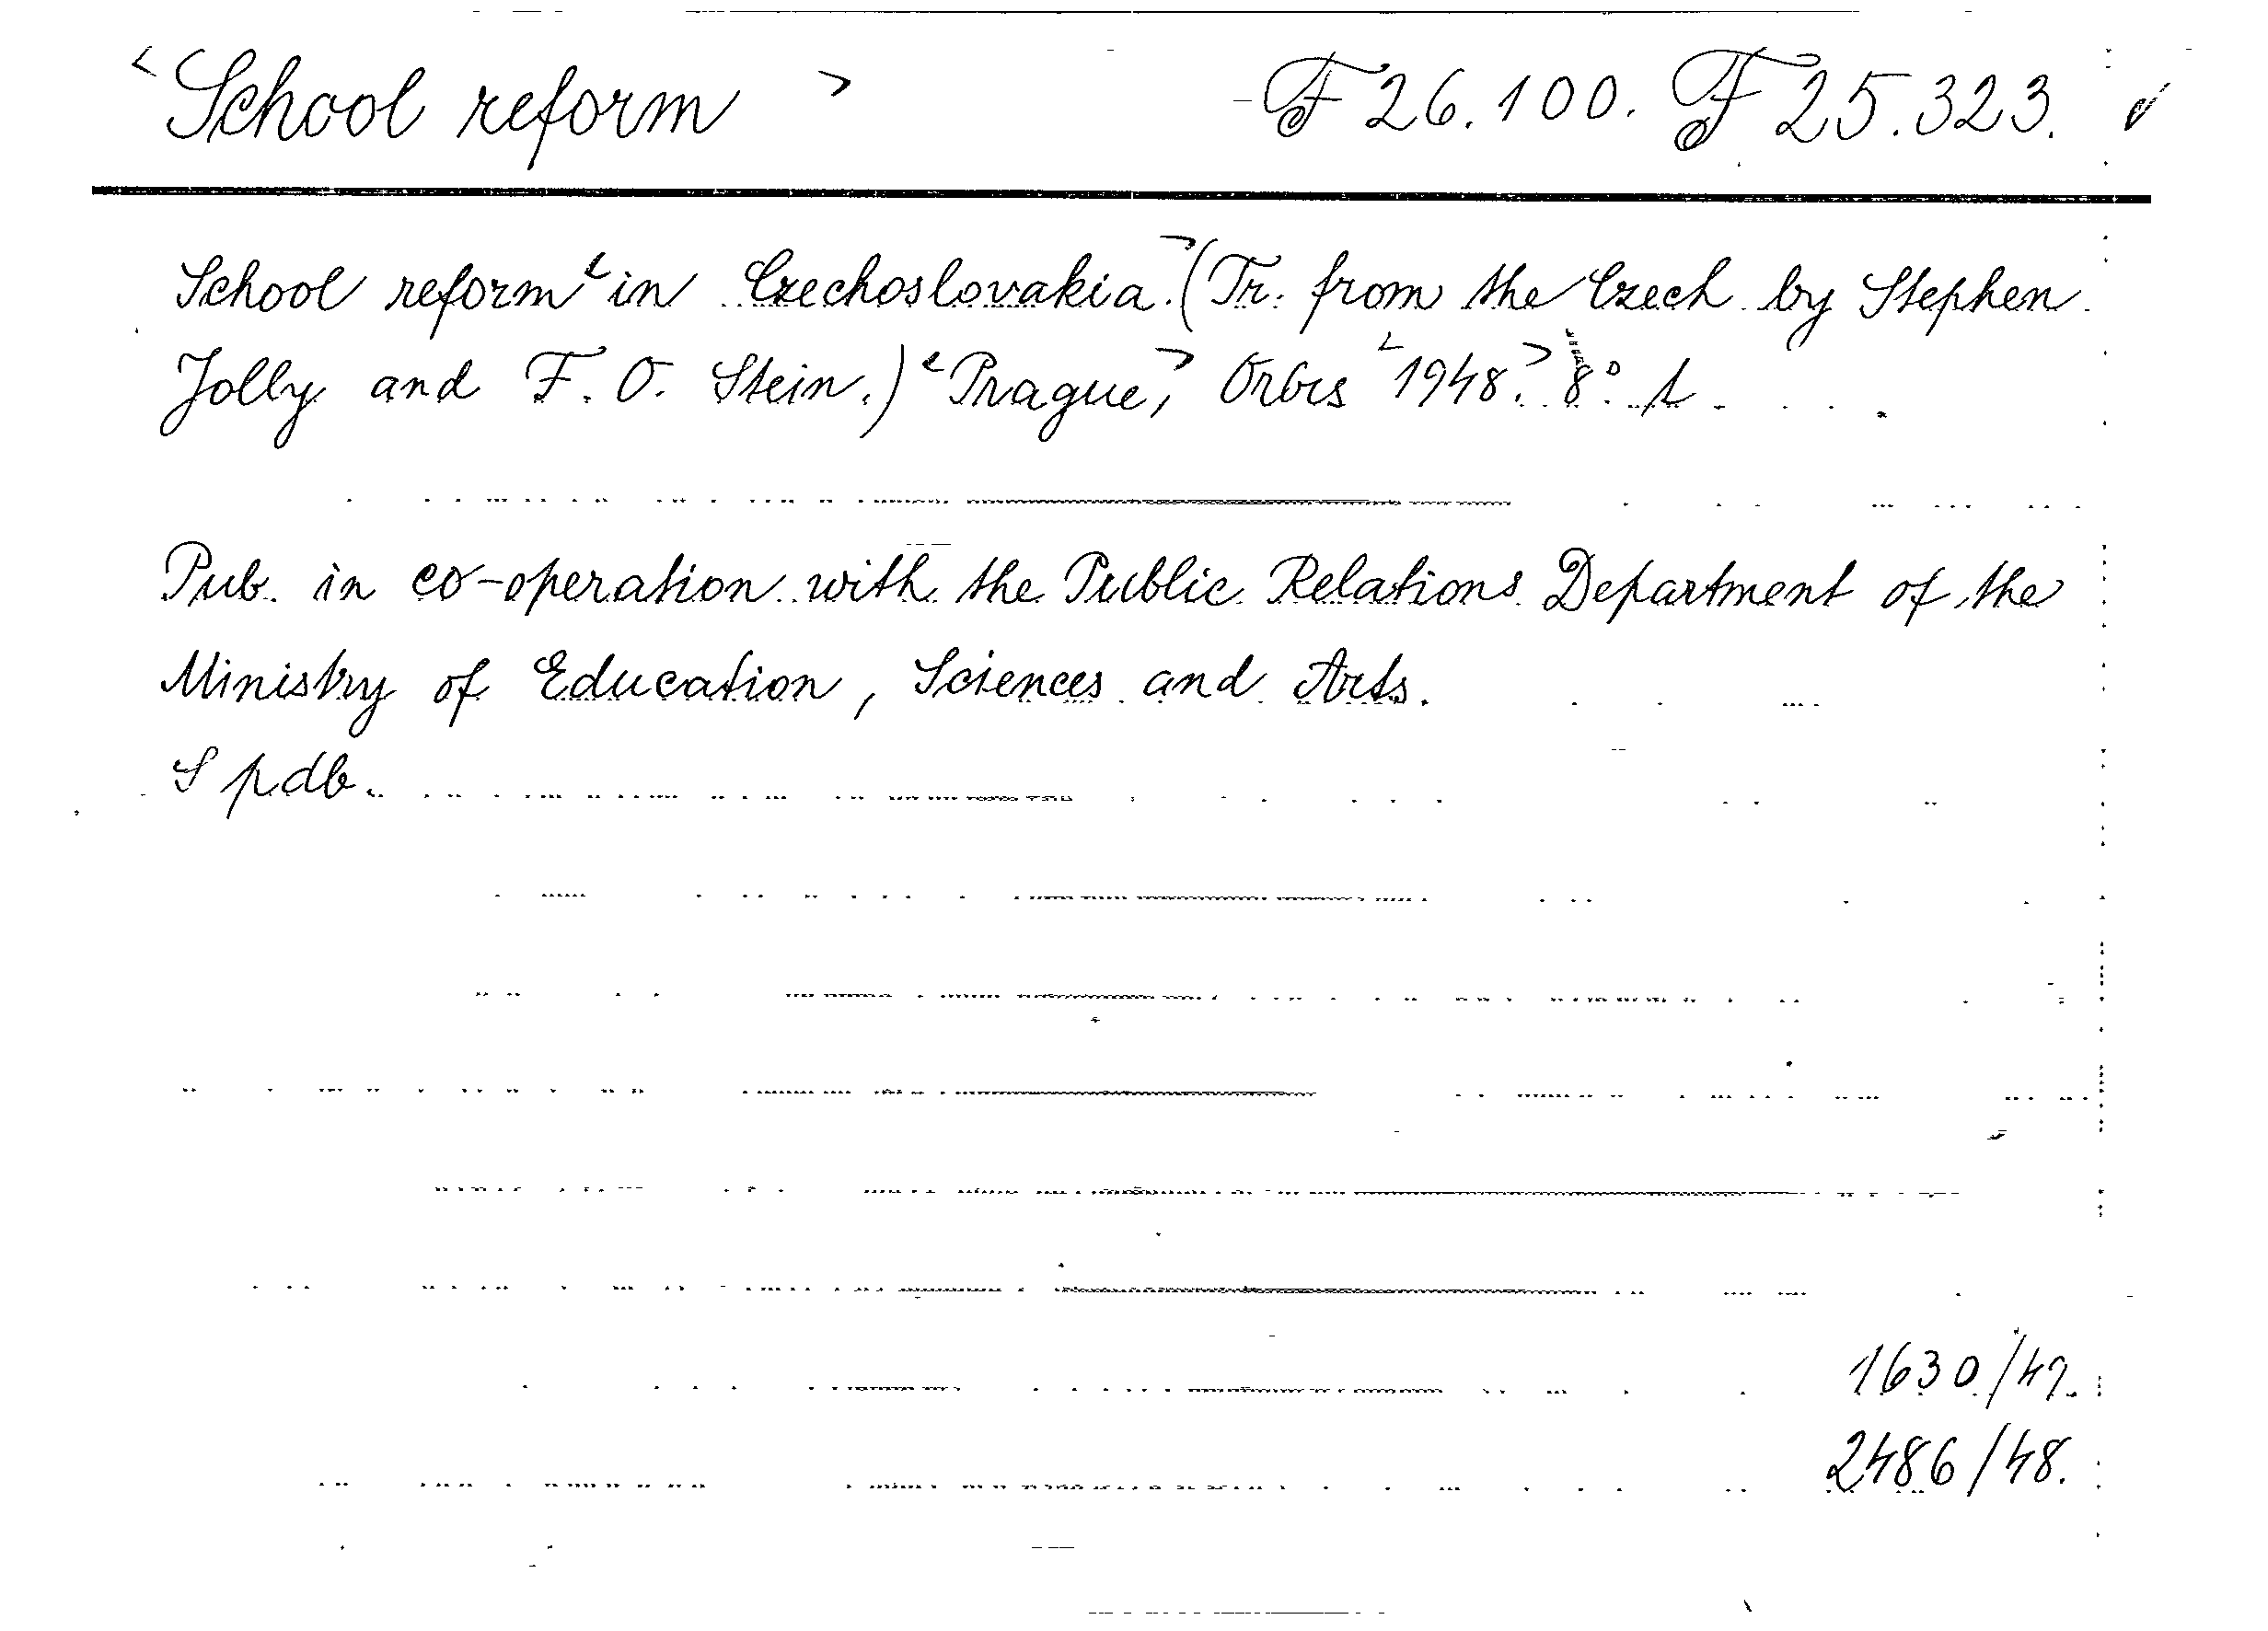 <School reform> F 26.100. F 25.323.
School reform <in Czechoslovakia.> (Tr. from the Czech by Stephen
Jolly and F. O. Stein.) <Prague,> Orbis <1948.> 8°.
Pub. in co-operation with the Public Relations Department of the
Ministry of Education, Sciences and Arts.
S pdb.
1630/49.
2486/48.